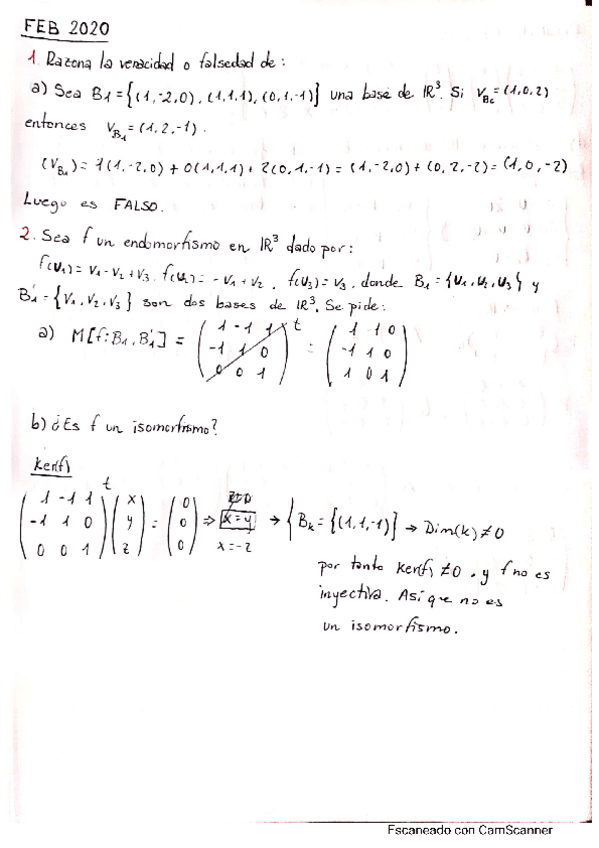 FEB 2020
1. Razona la veracidad o falsedad de:
a) Sea B₁ = {(1,-2,0), (1,1,1), (0,1,-1)} una base de IR³. Si V_Bc = (1,0,2)
entonces V_B₁ = (1,2,-1).
(V_B₁) = 1(1,-2,0) + 0(1,1,1) + 2(0,1,-1) = (1,-2,0) + (0,2,-2) = (1,0,-2)
Luego es FALSO.
2. Sea f un endomorfismo en IR³ dado por:
f(u₁) = v₁ - v₂ + v₃. f(u₂) = -v₁ + v₂, f(u₃) = v₃. donde B₁ = {u₁, u₂, u₃} y
B₁' = {v₁, v₂, v₃} son dos bases de IR³. Se pide:
a) M[f:B₁,B₁'] = (1 -1 1 / -1 1 0 / 0 0 1)ᵗ = (1 -1 0 / -1 1 0 / 1 0 1)
b) ¿Es f un isomorfismo?
Ker(f)
(1 -1 1 / -1 1 0 / 0 0 1)ᵗ (x / y / z) = (0 / 0 / 0) ⇒ x=y x=-z → {B_k = {(1,1,-1)} → Dim(k) ≠ 0
por tanto Ker(f) ≠ 0, y f no es
inyectiva. Así que no es
un isomorfismo.
Escaneado con CamScanner